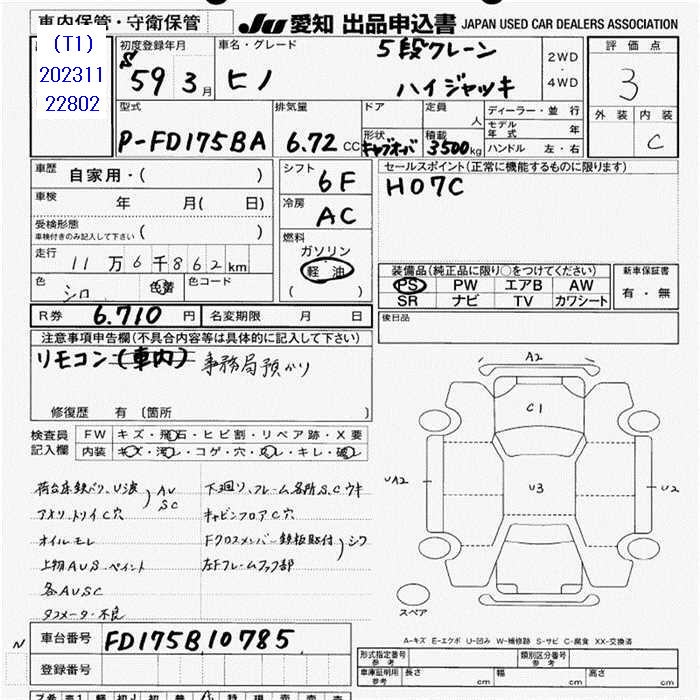 車内保管・守衛保管
JU 愛知 出品申込書 JAPAN USED CAR DEALERS ASSOCIATION
(T1)
202311
22802
初度登録年月
S59 3月
車名・グレード
ヒノ
5段クレーン
ハイジャッキ
2WD
・
4WD
評価点
3
外装 内装
C
型式
P-FD175BA
排気量
6.72 CC
ドア
形状
キャブオーバ
定員
人
積載
3500kg
ディーラー・並行
モデル年式 年
ハンドル 左・右
車歴
自家用・( )
車検
年 月( 日)
受検形態
車検付きのみ記入して下さい ( )
走行
11万6千862km
色
シロ
色替
色コード
シフト
6F
冷房
AC
燃料
ガソリン
軽油
( )
セールスポイント(正常に機能するものに限ります)
H07C
装備品(純正品に限り○をつけてください)
PS PW エアB AW
SR ナビ TV カワシート
新車保証書
有・無
後日品
R券 6.710 円
名変期限 月 日
注意事項申告欄(不具合内容等は具体的に記入して下さい)
リモコン(車内) 事務局預かり
修復歴 有 〔箇所 〕
検査員
記入欄
FW キズ・飛石・ヒビ割・リペア跡・X要
内装 キズ・汚レ・コゲ・穴・スレ・キレ・破レ
荷台床鉄バリ、U、凹波
AU
SC
アオリ、トリイC穴
オイルモレ
上物AUS、ペイント
各AUSC
タコメーター不良
下廻り、フレーム各所S、Cウキ
キャビンフロアC穴
Fクロスメンバー鉄板貼付
シワ
左Fフレーム
A2
C1
UA2
U3
U2
スペア
A-キズ E-エクボ U-凹み W-補修跡 S-サビ C-腐食 XX-交換済
N
車台番号 FD175B10785
登録番号
形式指定番号
参考
類別区分番号
参考
車庫証明用
参考
長さ cm 幅 cm 高さ cm